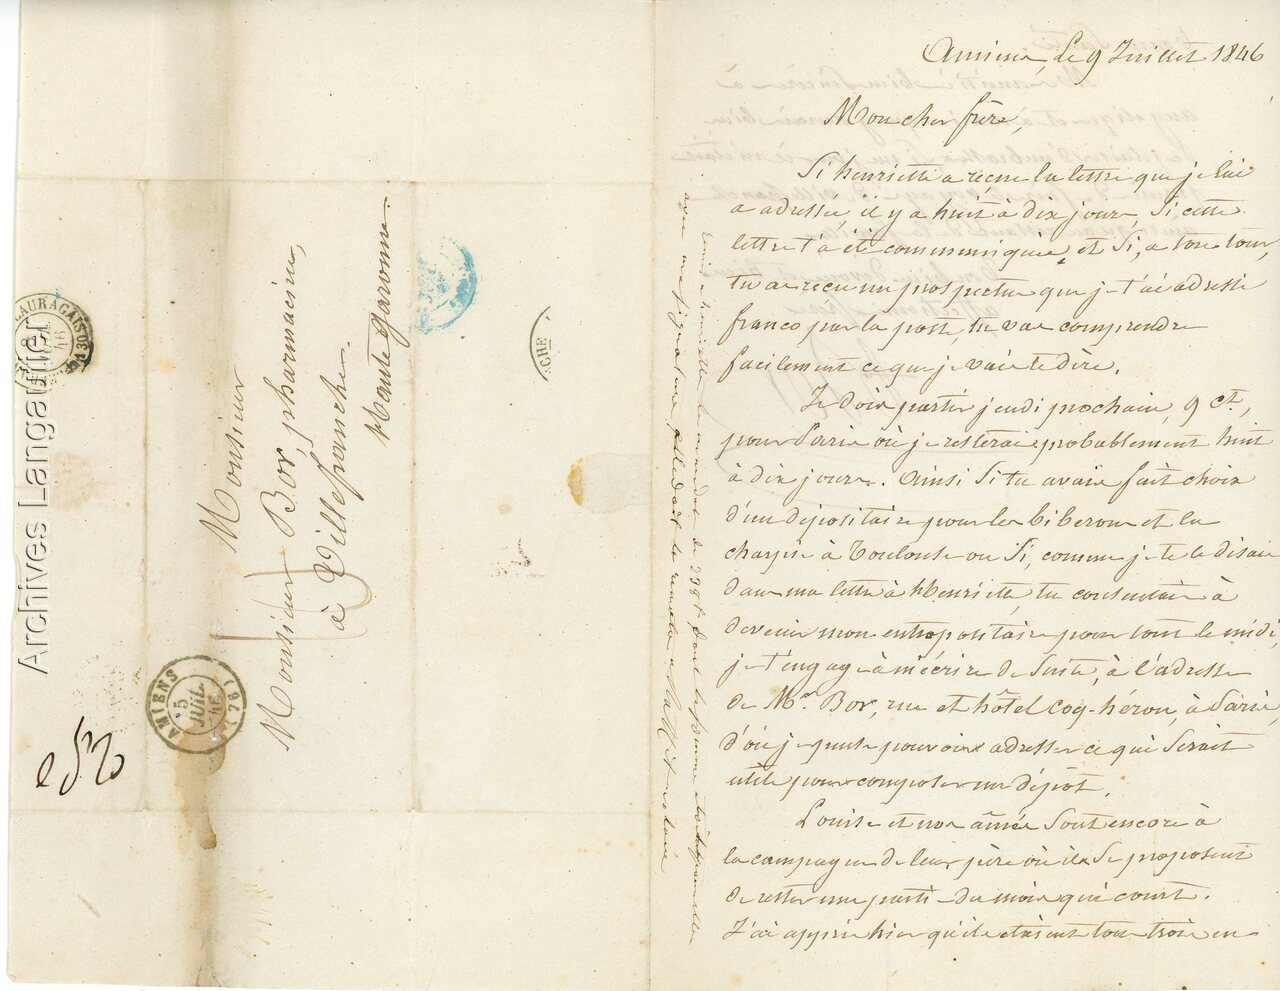 Amiens, Le 9 Juillet 1846
Mon cher frère,
Si henriette a reçue la lettre que je lui
a adressée, il y a huit à dix jours, Si cette
lettre t'a été communiquée, et Si, a ton tour,
tu as reçu un prospectus que je t'ai adressé
franco par la poste, tu vas comprendre
facilement ce que je vais te dire.
Je dois partir jeudi prochain, 9 Ct,
pour Paris où je resterai probablement huit
à dix jours. Ainsi Si tu avais fait choix
d'un dépositaire pour les biberons et la
charpie à Toulouse ou Si, comme je te le disais
dans ma lettre à Henriette, tu consentais à
devenir mon entrepositaire pour tout le midi,
je t'engage à m'écrire de Suite, à l'adresse
de Mr. Bor, rue et hôtel Coq-héron, à Paris,
d'où je puisse pouvoir adresser ce qui Serait
utile pour composer un dépôt.
Louise et nos aînés Sont encore à
la campagne de leur père où ils Se proposent
de rester une partie du mois qui court.
J'ai appris hier qu'ils étaient tous trois en
remis a henriette le mandat de 239 f dont la somme
avec ma signature
Monsieur
Monsieur Bor, pharmacien,
à Villefranche.
haute garonne
AMIENS (79)
5
JUIL.
46
LAURAGAIS (30)
CHE
Archives Langaulier